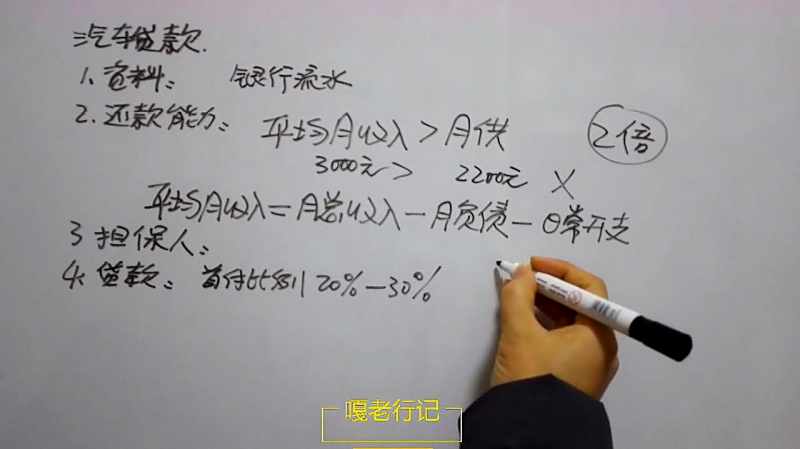 汽车贷款.
1、资料： 银行流水
2、还款能力： 平均月收入 > 月供 2倍
3000元 > 2200元 X
平均月收入 = 月总收入 - 月负债 - 日常开支
3 担保人：
4、贷款： 首付比例 20% - 30%
嘎老行记